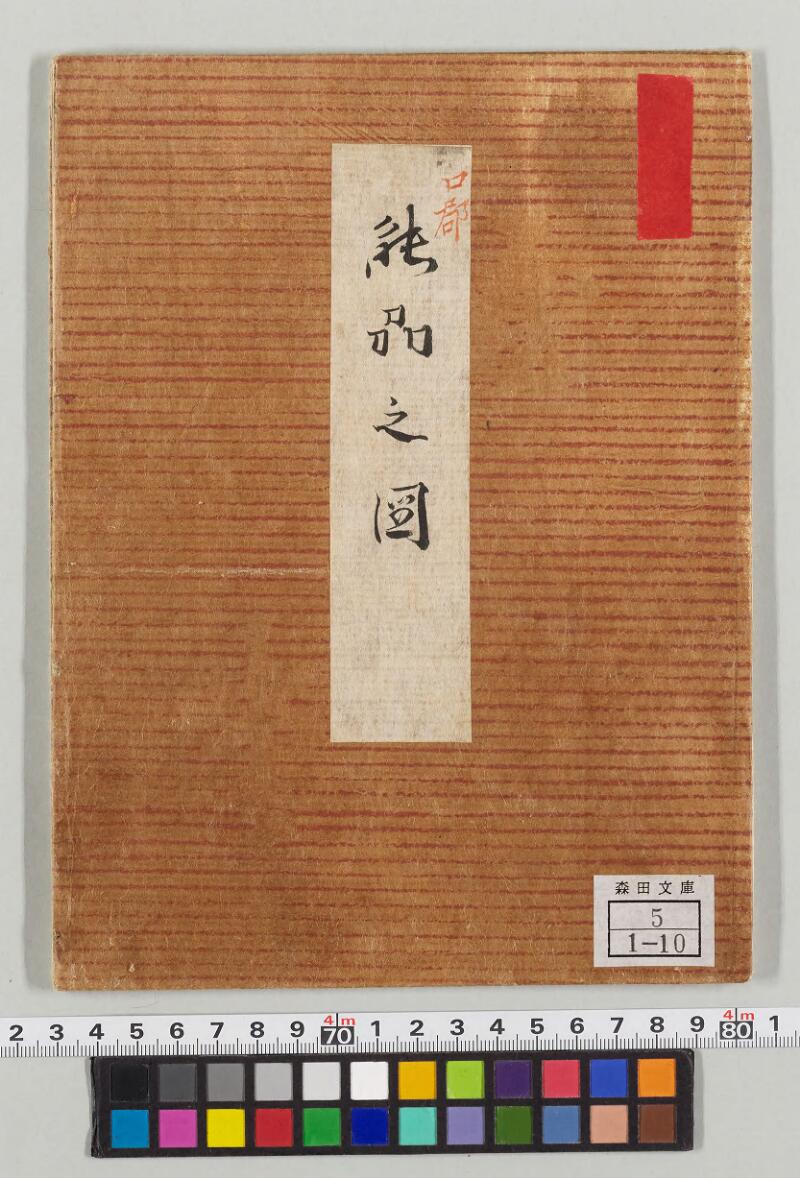 口郡
能刕之圖
森田文庫
5
1-10
2 3 4 5 6 7 8 9 4m 70 1 2 3 4 5 6 7 8 9 4m 80 1